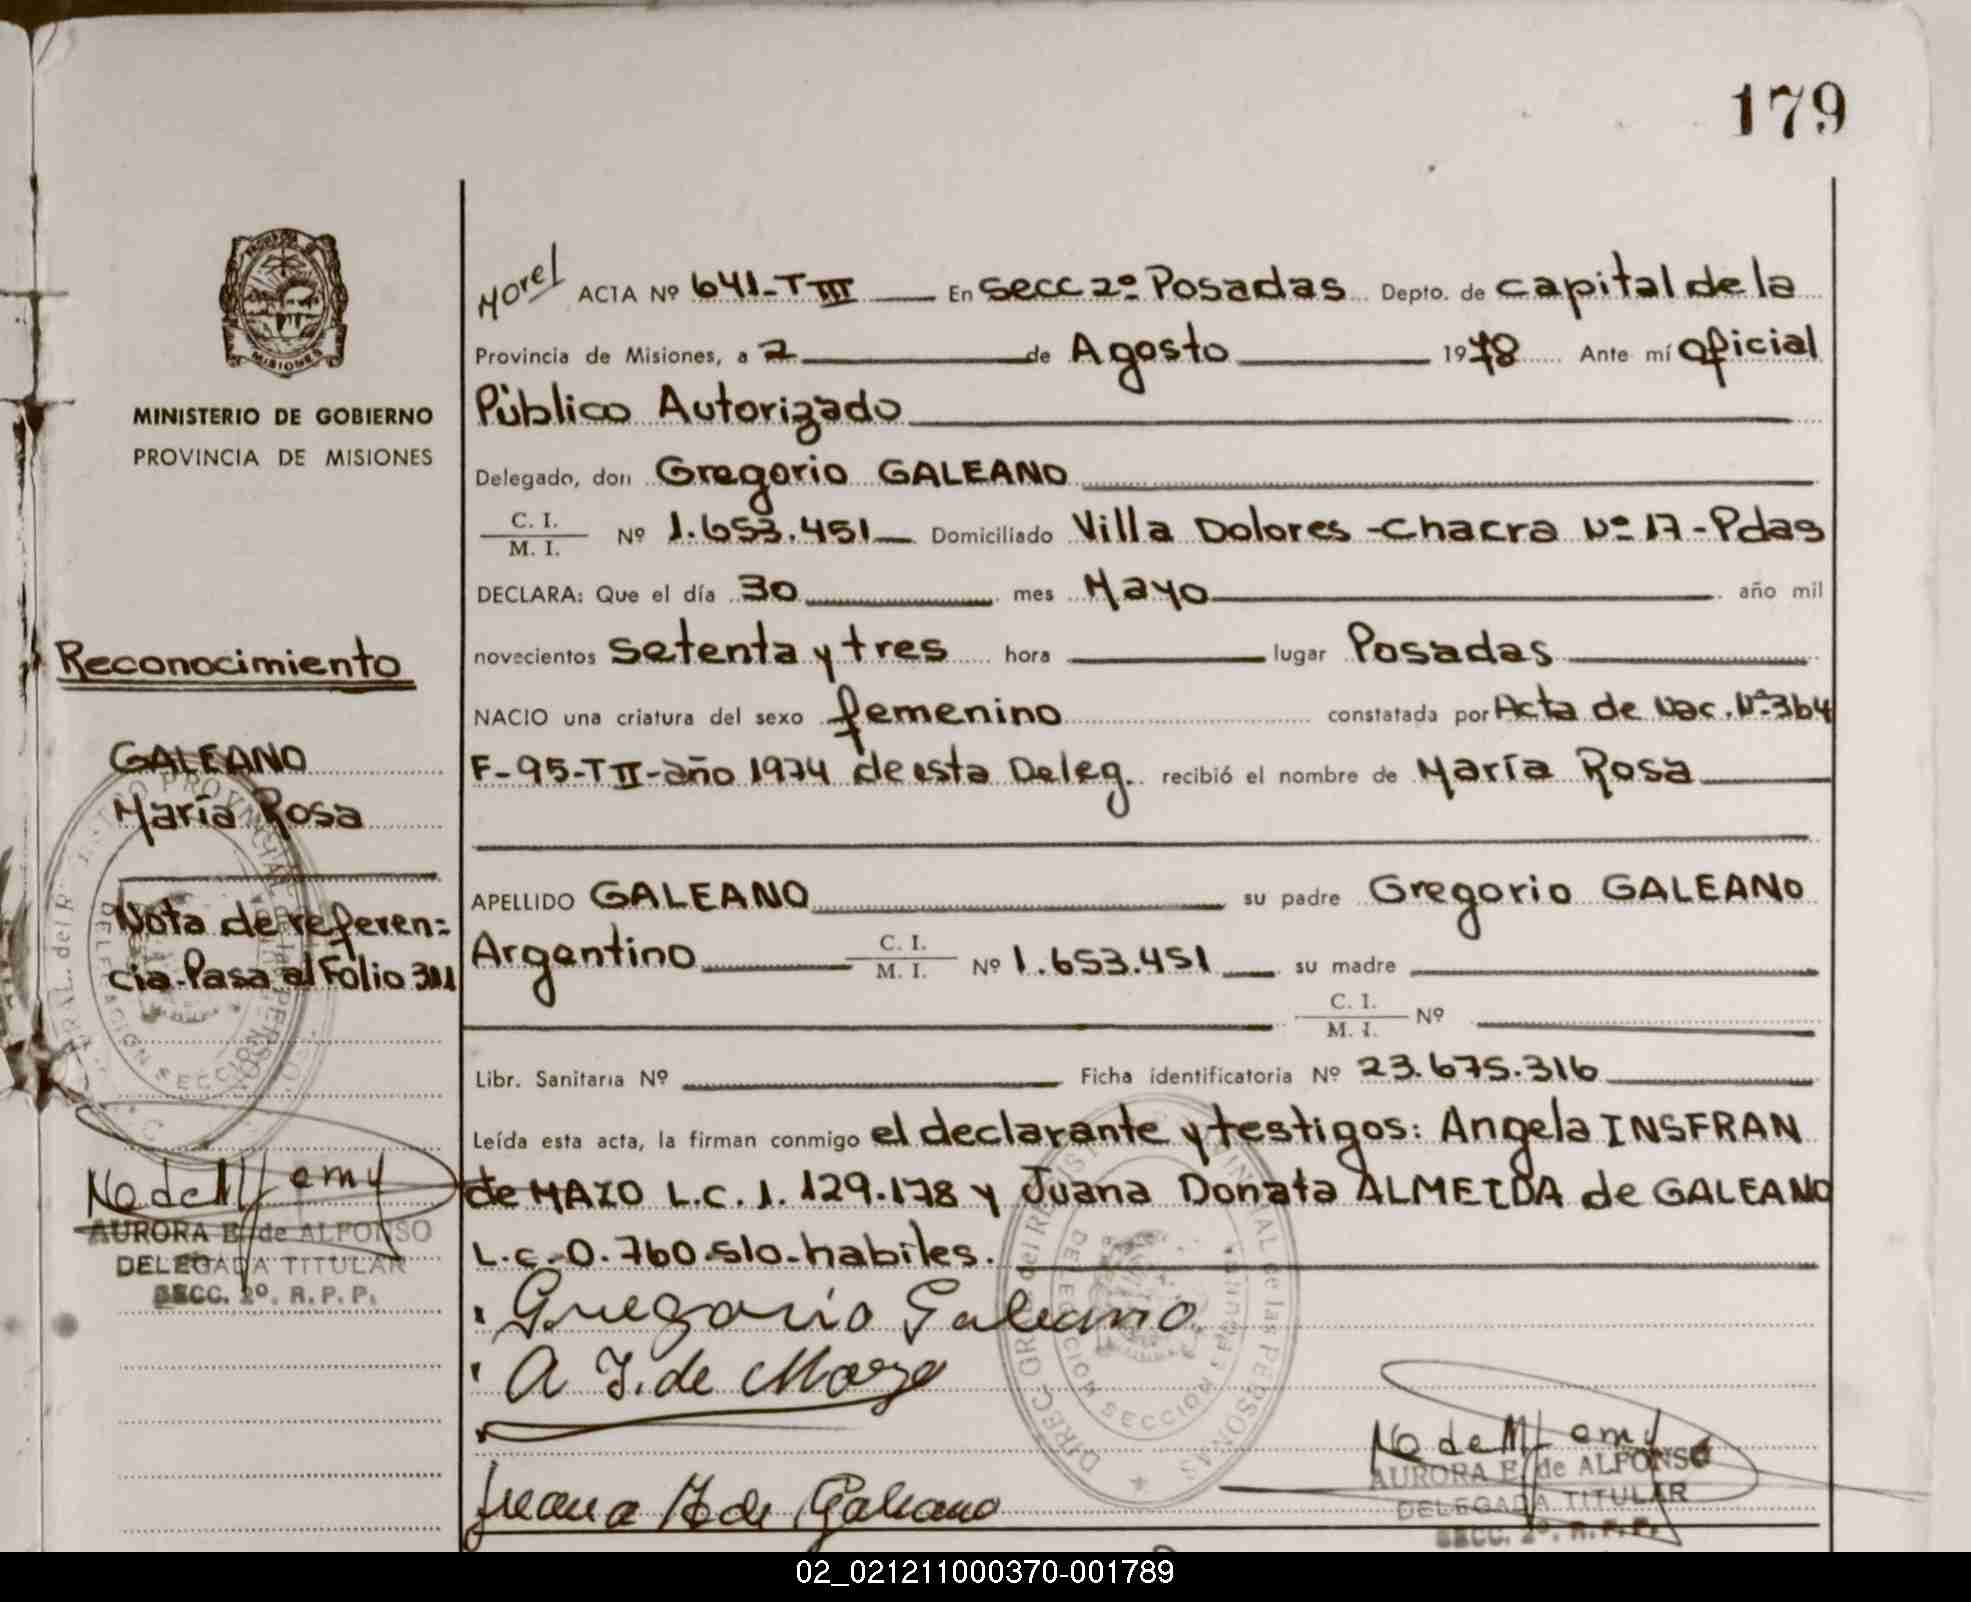 179
Morel ACTA Nº 641-T III En Secc 2º Posadas Depto. de Capital de la
Provincia de Misiones, a 2 de Agosto 1978 Ante mí Oficial
Público Autorizado
MINISTERIO DE GOBIERNO
PROVINCIA DE MISIONES
Delegado, don Gregorio GALEANO
C. I.
M. I. Nº 1.653.451 Domiciliado Villa Dolores - Chacra Nº 17 - Pdas
DECLARA: Que el día 30 mes Mayo año mil
novecientos setenta y tres hora lugar Posadas
NACIO una criatura del sexo femenino constatada por Acta de Nac. Nº 364
F-95-T II-año 1974 de esta Deleg. recibió el nombre de María Rosa
Reconocimiento
GALEANO
María Rosa
Nota de referen=
cia. Pasa al Folio 311
APELLIDO GALEANO su padre Gregorio GALEANO
Argentino C. I. M. I. Nº 1.653.451 su madre
C. I. M. I. Nº
Libr. Sanitaria Nº Ficha identificatoria Nº 23.675.316
Leída esta acta, la firman conmigo el declarante y testigos: Angela INSFRAN
de MAZO L.C. 1.129.178 y Juana Donata ALMEIDA de GALEANO
L.C. 0.760.510-habiles.
Gregorio Galeano
A I. de Mazo
Juana A de Galeano
AURORA E. de ALFONSO
DELEGADA TITULAR
SECC. 2º. R. P. P.
AURORA E. de ALFONSO
DELEGADA TITULAR
SECC. 2º. R. P. P.
02_021211000370-001789